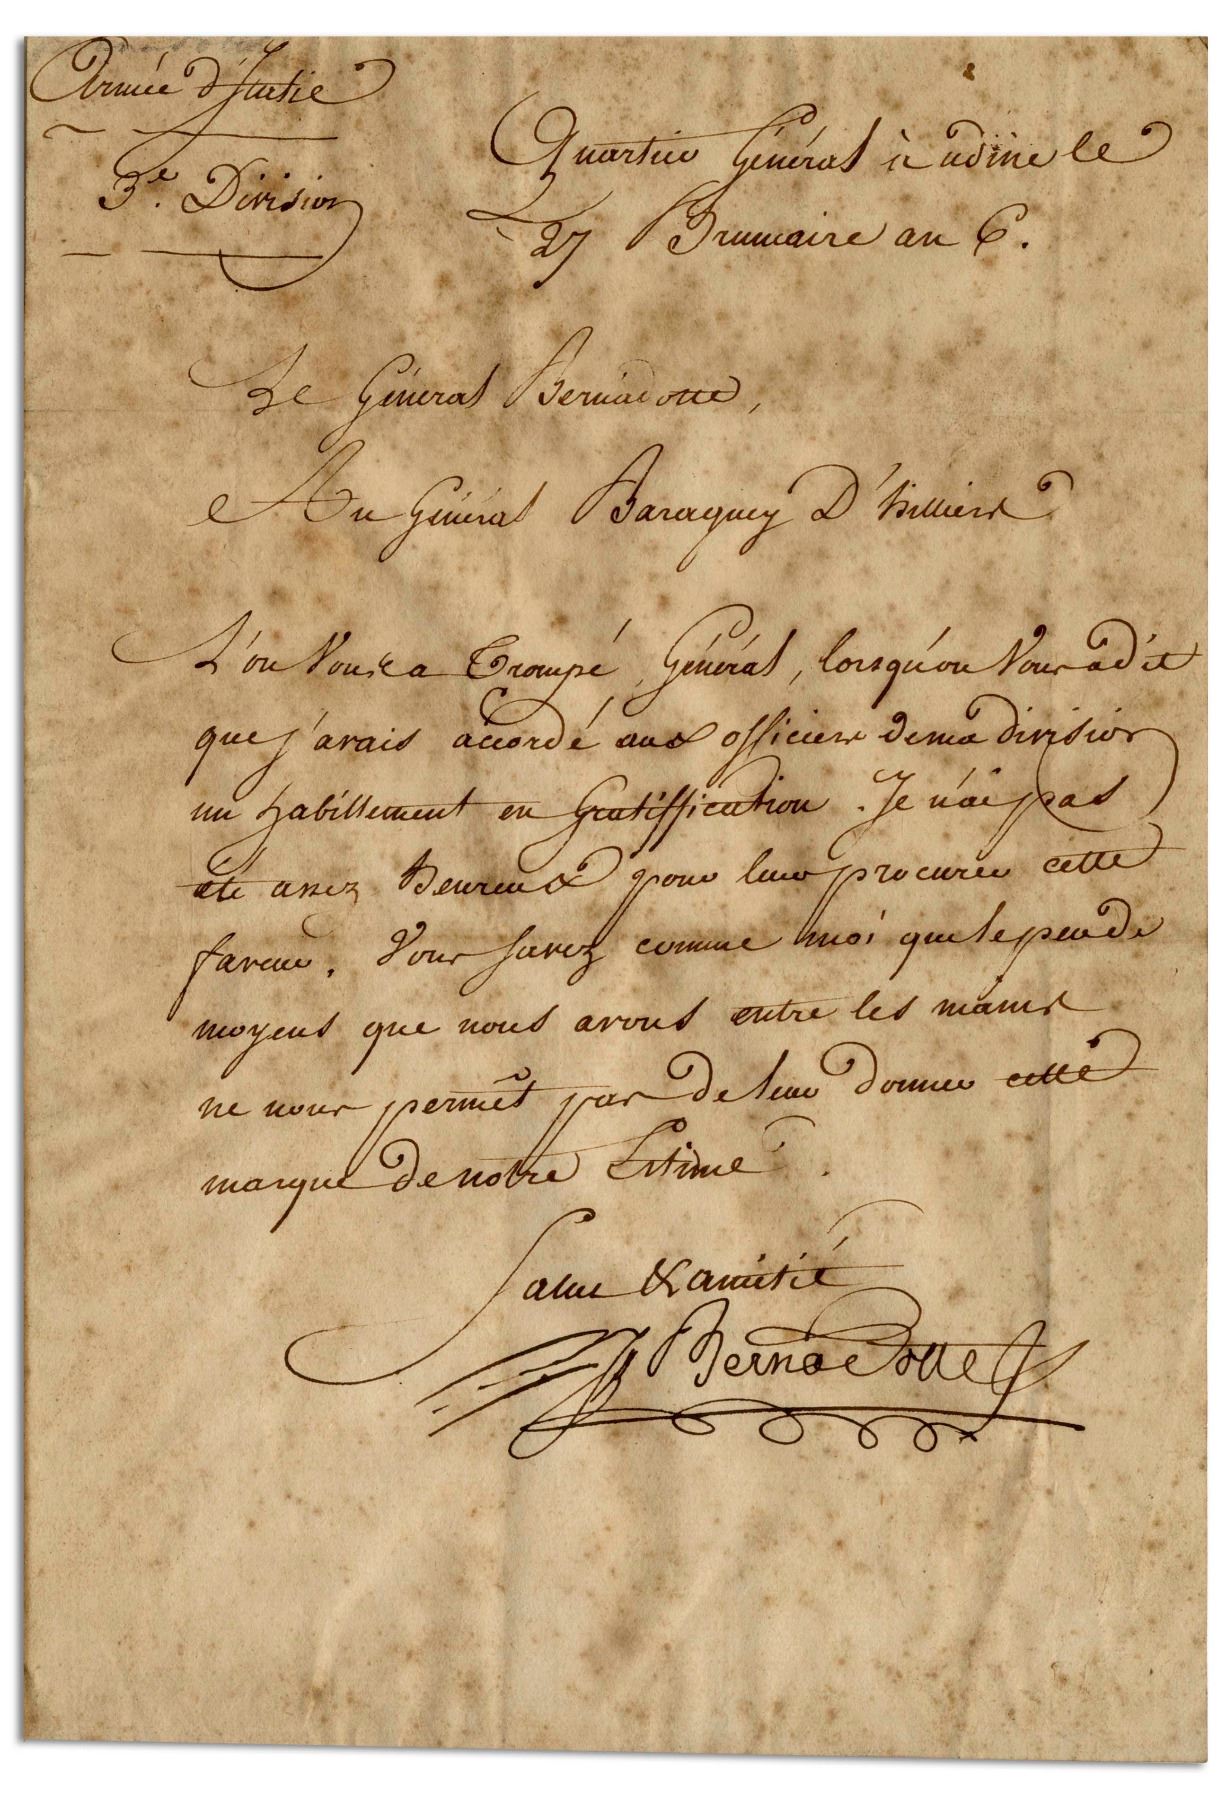 Armée d'Italie
3e. Division
Quartier Général à udine le
27 Brumaire an 6.
Le Général Bernadotte,
Au Général Baraguey D'hilliers
L'on Vous a Trompé, Général, lorsqu'on Vous a dit
que j'avais accordé aux officiers de ma division
un habillement en Gratiffication. Je n'ai pas
été assez heureux pour leur procurer cette
faveur. Vous savez comme moi que le peu de
moyens que nous avons entre les mains
ne nous permêt pas de leur donner cette
marque de notre Estime.
Salut & amitié
J Bernadotte